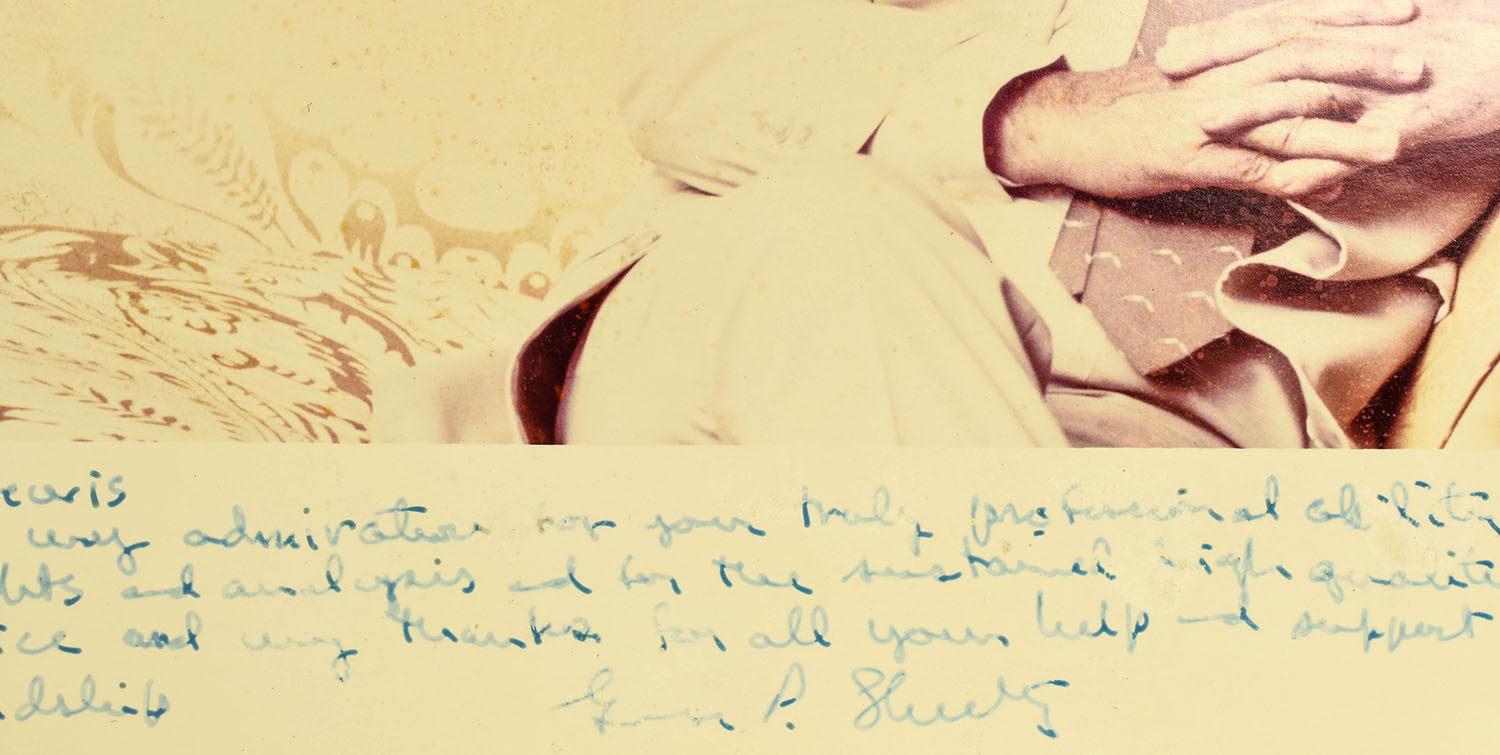 my admiration for your truly professional ability
and analysis and for the sustained high quality
and my thanks for all your help and support
George P. Shultz